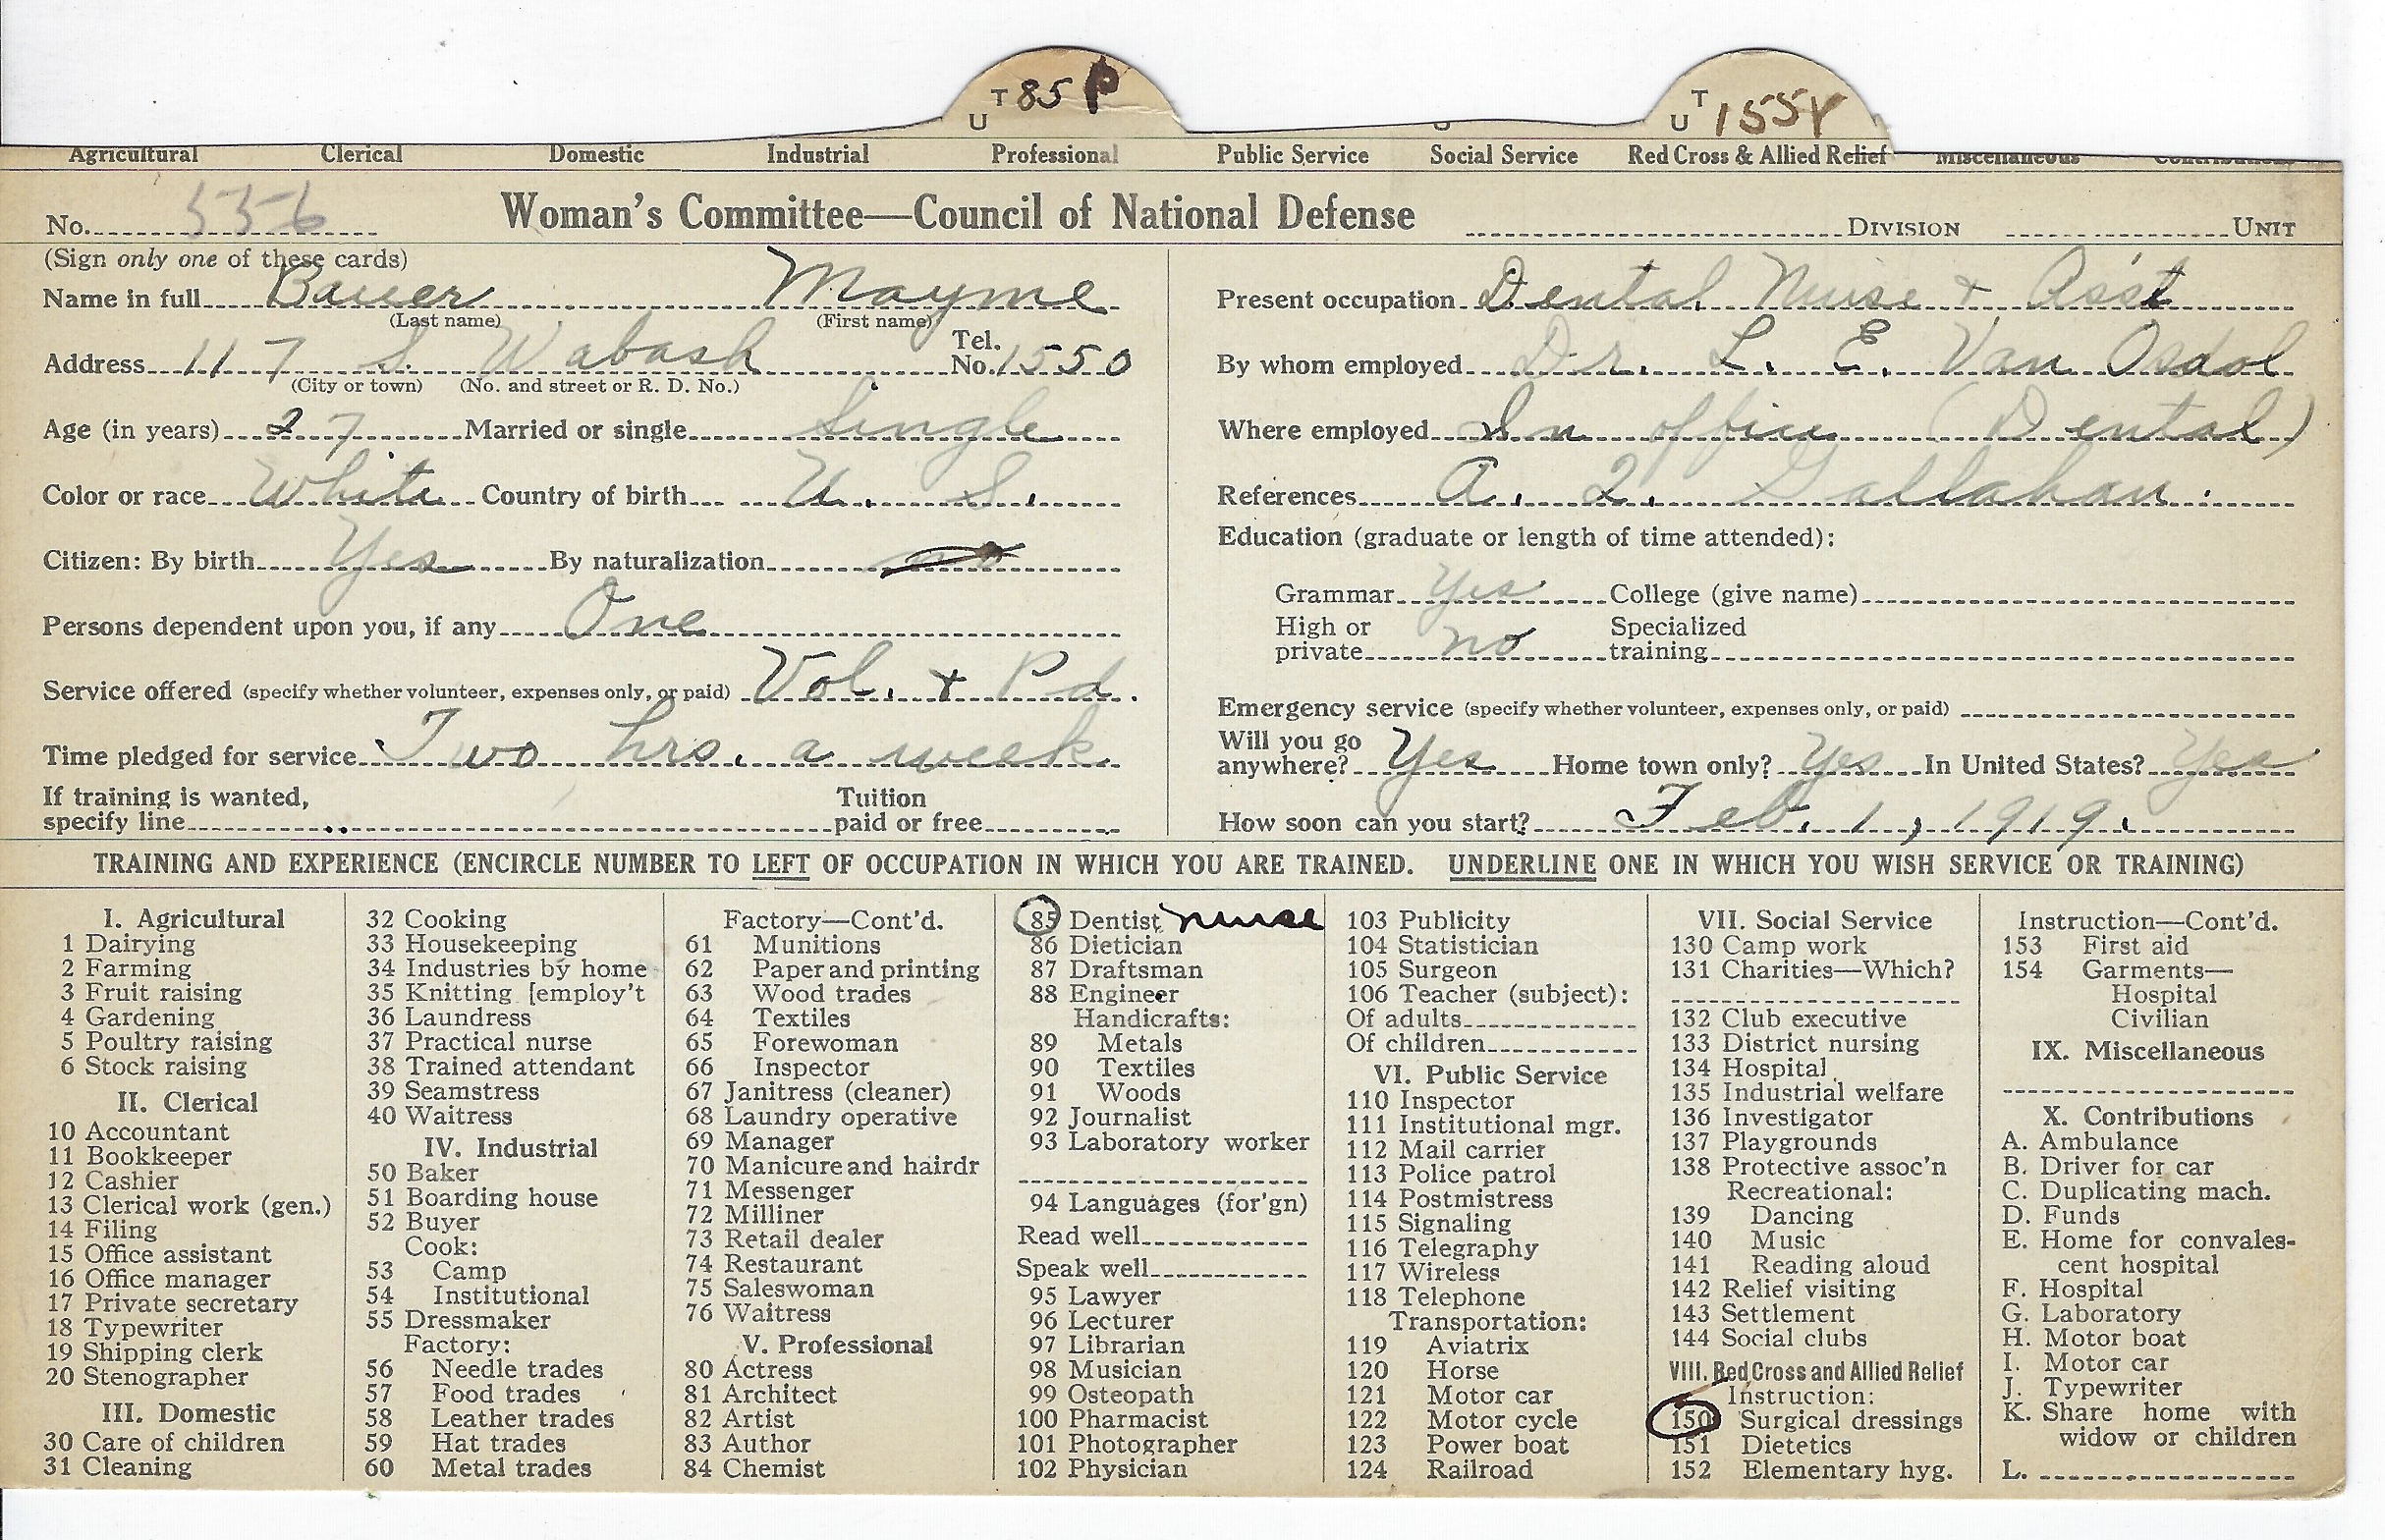 T 85 P
U
T 155V
U
Agricultural Clerical Domestic Industrial Professional Public Service Social Service Red Cross & Allied Relief Miscellaneous Contributions
No. 556 Woman's Committee—Council of National Defense DIVISION UNIT
(Sign only one of these cards)
Name in full Bauer Mayme
(Last name) (First name)
Address 117 S. Wabash Tel. No. 1550
(City or town) (No. and street or R. D. No.)
Age (in years) 27 Married or single Single
Color or race White Country of birth U. S.
Citizen: By birth Yes By naturalization no
Persons dependent upon you, if any One
Service offered (specify whether volunteer, expenses only, or paid) Vol. + Pd.
Time pledged for service Two hrs. a week
If training is wanted, Tuition
specify line paid or free
Present occupation Dental Nurse + Ass't
By whom employed Dr. L. E. Van Osdol
Where employed In office (Dental)
References A. Q. Gallahan.
Education (graduate or length of time attended):
Grammar Yes College (give name)
High or Specialized
private no training
Emergency service (specify whether volunteer, expenses only, or paid)
Will you go
anywhere? Yes Home town only? Yes In United States? Yes
How soon can you start? Feb. 1, 1919.
TRAINING AND EXPERIENCE (ENCIRCLE NUMBER TO LEFT OF OCCUPATION IN WHICH YOU ARE TRAINED. UNDERLINE ONE IN WHICH YOU WISH SERVICE OR TRAINING)
I. Agricultural
1 Dairying
2 Farming
3 Fruit raising
4 Gardening
5 Poultry raising
6 Stock raising
II. Clerical
10 Accountant
11 Bookkeeper
12 Cashier
13 Clerical work (gen.)
14 Filing
15 Office assistant
16 Office manager
17 Private secretary
18 Typewriter
19 Shipping clerk
20 Stenographer
III. Domestic
30 Care of children
31 Cleaning
32 Cooking
33 Housekeeping
34 Industries by home
35 Knitting [employ't
36 Laundress
37 Practical nurse
38 Trained attendant
39 Seamstress
40 Waitress
IV. Industrial
50 Baker
51 Boarding house
52 Buyer
Cook:
53 Camp
54 Institutional
55 Dressmaker
Factory:
56 Needle trades
57 Food trades
58 Leather trades
59 Hat trades
60 Metal trades
Factory—Cont'd.
61 Munitions
62 Paper and printing
63 Wood trades
64 Textiles
65 Forewoman
66 Inspector
67 Janitress (cleaner)
68 Laundry operative
69 Manager
70 Manicure and hairdr
71 Messenger
72 Milliner
73 Retail dealer
74 Restaurant
75 Saleswoman
76 Waitress
V. Professional
80 Actress
81 Architect
82 Artist
83 Author
84 Chemist
85 Dentist nurse
86 Dietician
87 Draftsman
88 Engineer
Handicrafts:
89 Metals
90 Textiles
91 Woods
92 Journalist
93 Laboratory worker
94 Languages (for'gn)
Read well
Speak well
95 Lawyer
96 Lecturer
97 Librarian
98 Musician
99 Osteopath
100 Pharmacist
101 Photographer
102 Physician
103 Publicity
104 Statistician
105 Surgeon
106 Teacher (subject):
Of adults
Of children
VI. Public Service
110 Inspector
111 Institutional mgr.
112 Mail carrier
113 Police patrol
114 Postmistress
115 Signaling
116 Telegraphy
117 Wireless
118 Telephone
Transportation:
119 Aviatrix
120 Horse
121 Motor car
122 Motor cycle
123 Power boat
124 Railroad
VII. Social Service
130 Camp work
131 Charities—Which?
132 Club executive
133 District nursing
134 Hospital
135 Industrial welfare
136 Investigator
137 Playgrounds
138 Protective assoc'n
Recreational:
139 Dancing
140 Music
141 Reading aloud
142 Relief visiting
143 Settlement
144 Social clubs
VIII. Red Cross and Allied Relief
Instruction:
150 Surgical dressings
151 Dietetics
152 Elementary hyg.
Instruction—Cont'd.
153 First aid
154 Garments—
Hospital
Civilian
IX. Miscellaneous
X. Contributions
A. Ambulance
B. Driver for car
C. Duplicating mach.
D. Funds
E. Home for convales-
cent hospital
F. Hospital
G. Laboratory
H. Motor boat
I. Motor car
J. Typewriter
K. Share home with
widow or children
L.